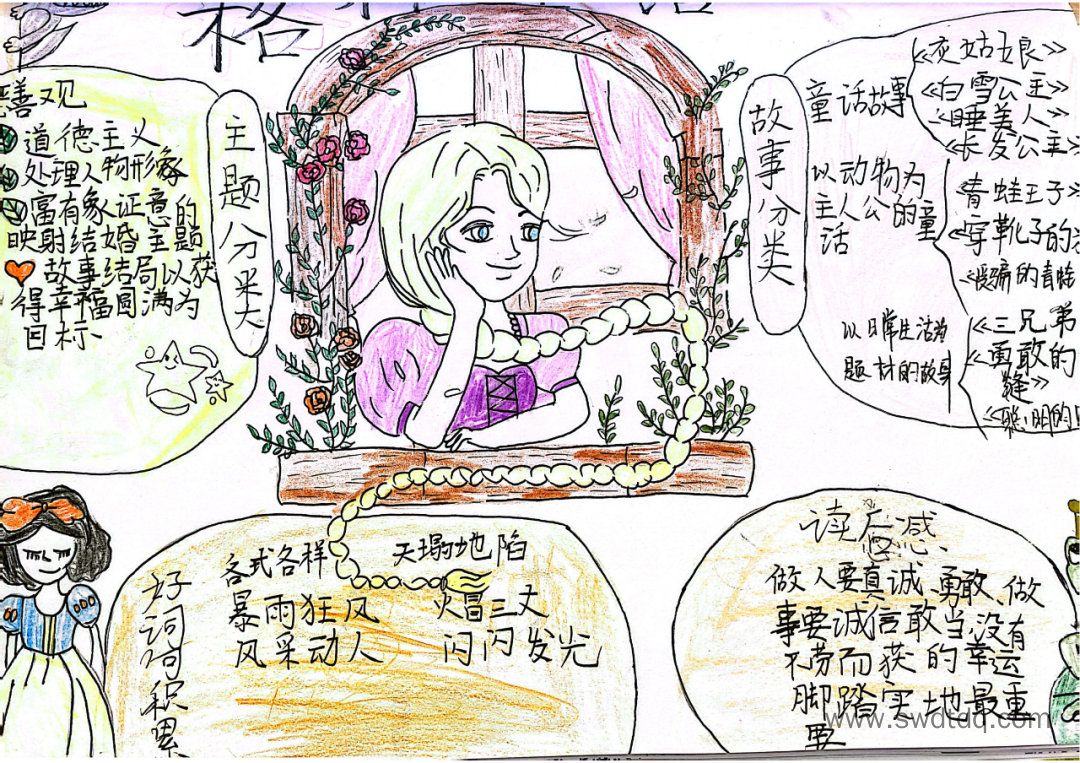 格
善观
道德主义
处理人物形象
富有象证意的
映射结婚主题
故事结局以获
得幸福圆满为
目标
主题分类
故事分类
童话故事
《灰姑娘》
《白雪公主》
《睡美人》
《长发公主》
以动物为
主人公的童
话
《青蛙王子》
《穿靴子的
以日常生活为
题材的故事
《三兄弟
《勇敢的
缝》
《聪明的
好词词积累
各式各样 天塌地陷
暴雨狂风 火冒三丈
风采动人 闪闪发光
读后感
做人要真诚、勇敢、做
事要诚信敢当,没有
不劳而获的幸运
脚踏实地最重
要
www.swdtdq.com